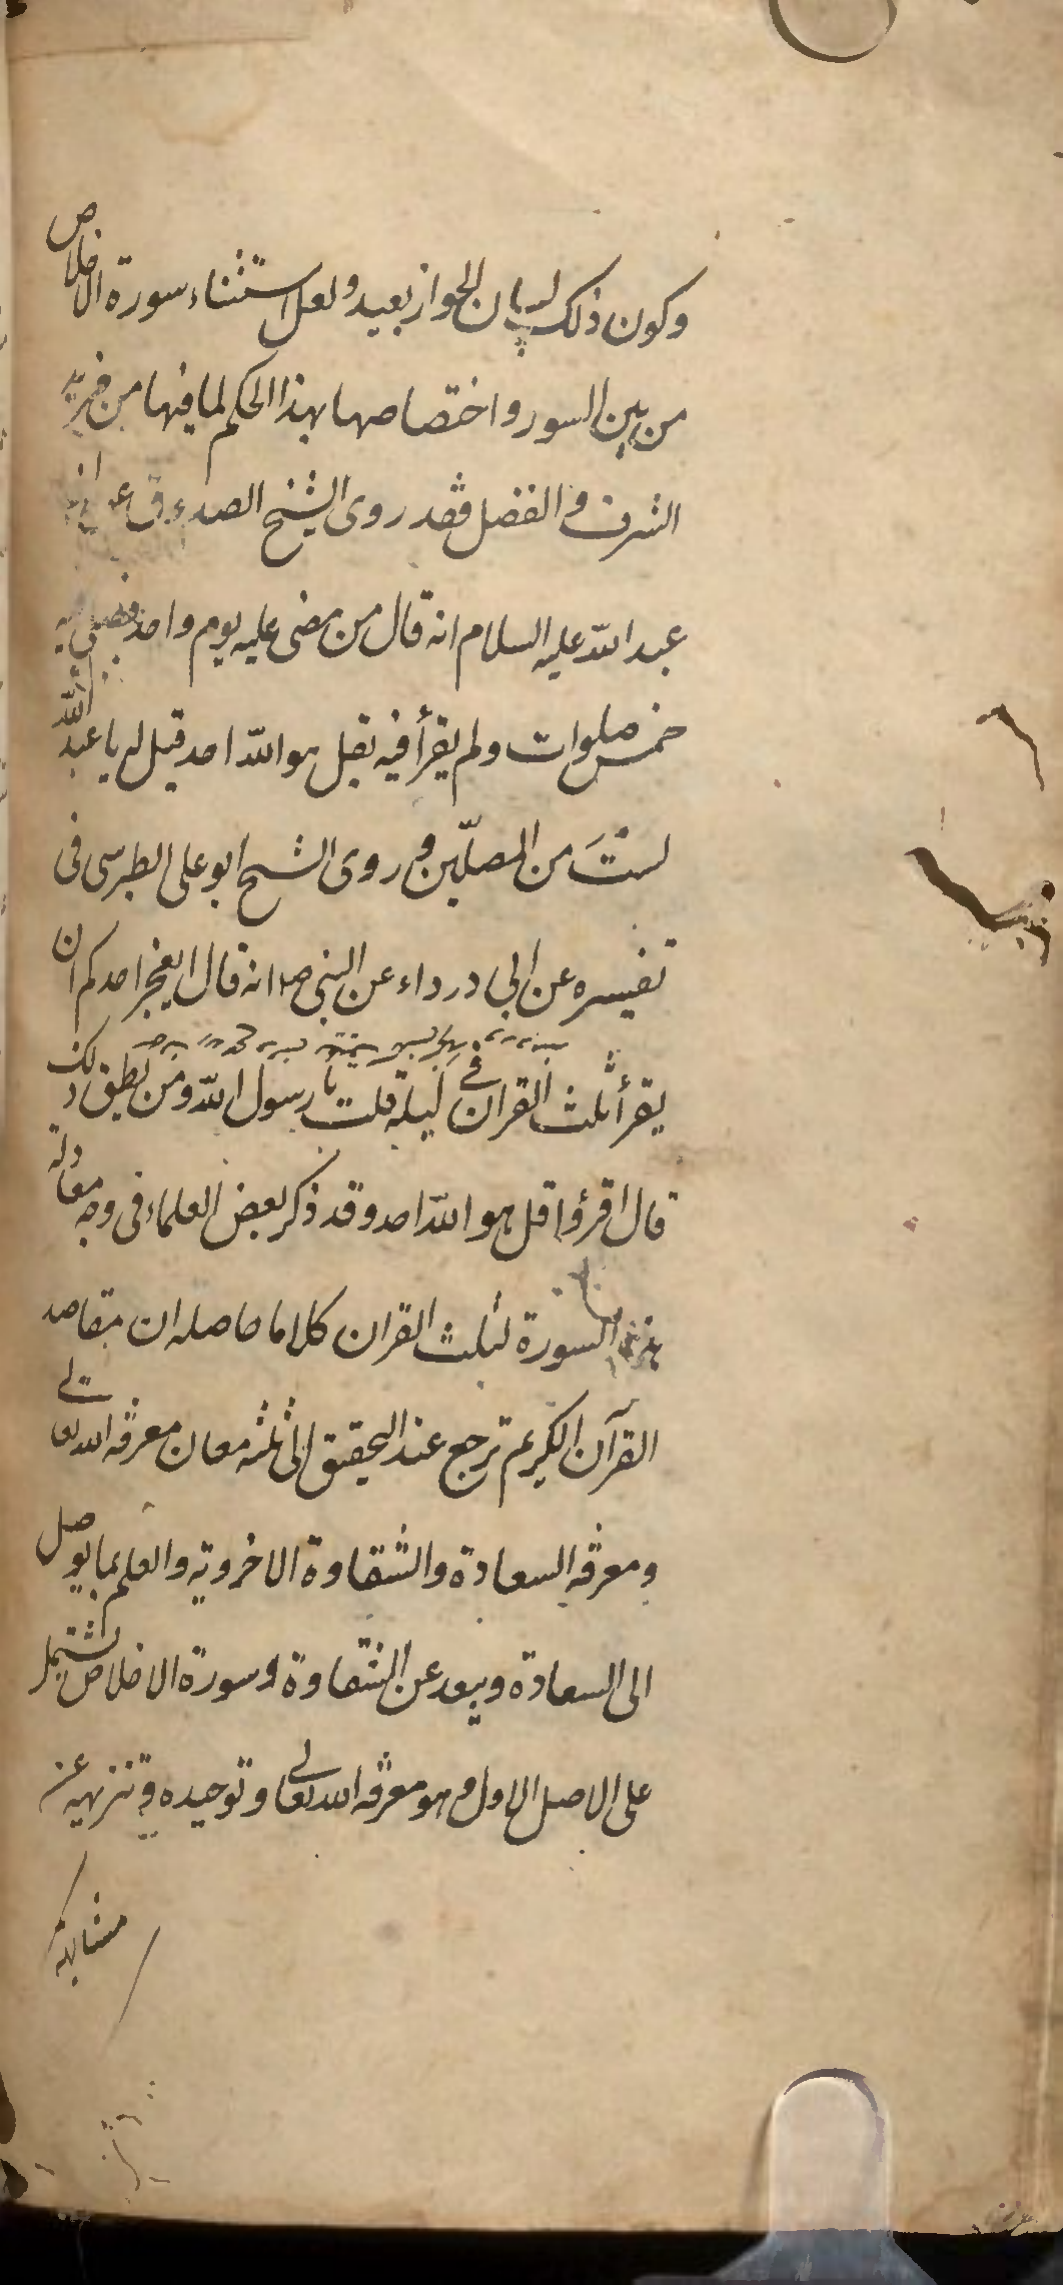 وكون ذلك لبيان الجواز بعيد ولعل استثناء سورة الاخلاص
من بين السور واختصاصها بهذا الحكم لما فيها من مزيد
الشرف والفضل فقد روى الشيخ الصدوق عن ابي
عبد الله عليه السلام انه قال من مضى عليه يوم واحد فصلى فيه
خمس صلوات ولم يقرأ فيه بقل هو الله احد قيل له يا عبد الله
لستَ من المصلّين و روى الشيخ ابو على الطبرسى فى
تفسيره عن ابي درداء عن النبي ص انه قال ايعجز احدكم ان
يقرأ ثلث القران في ليلة قلت يا رسول الله ومن يطيق ذلك
قال اقرؤا قل هو الله احد وقد ذكر بعض العلماء فى وجه معادلة
هذه السورة لثلث القران كلاما حاصله ان مقاصد
القرآن الكريم ترجع عند التحقيق الى ثلثة معان معرفة الله تعالى
ومعرفة السعادة والشقاوة الاخروية والعلم بما يوصل
الى السعادة ويبعد عن الشقاوة وسورة الاخلاص تشتمل
على الاصل الاول و هو معرفة الله تعالى وتوحيده و تنزيهه عن
مشابهة